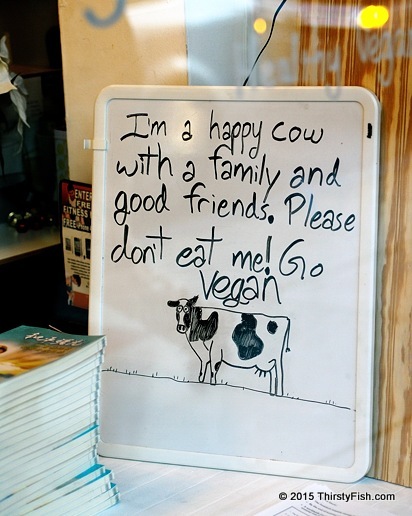 I'm a happy cow
with a family and
good friends. Please
don't eat me! Go
vegan
ENTER
FREE
FITNESS
© 2015 ThirstyFish.com